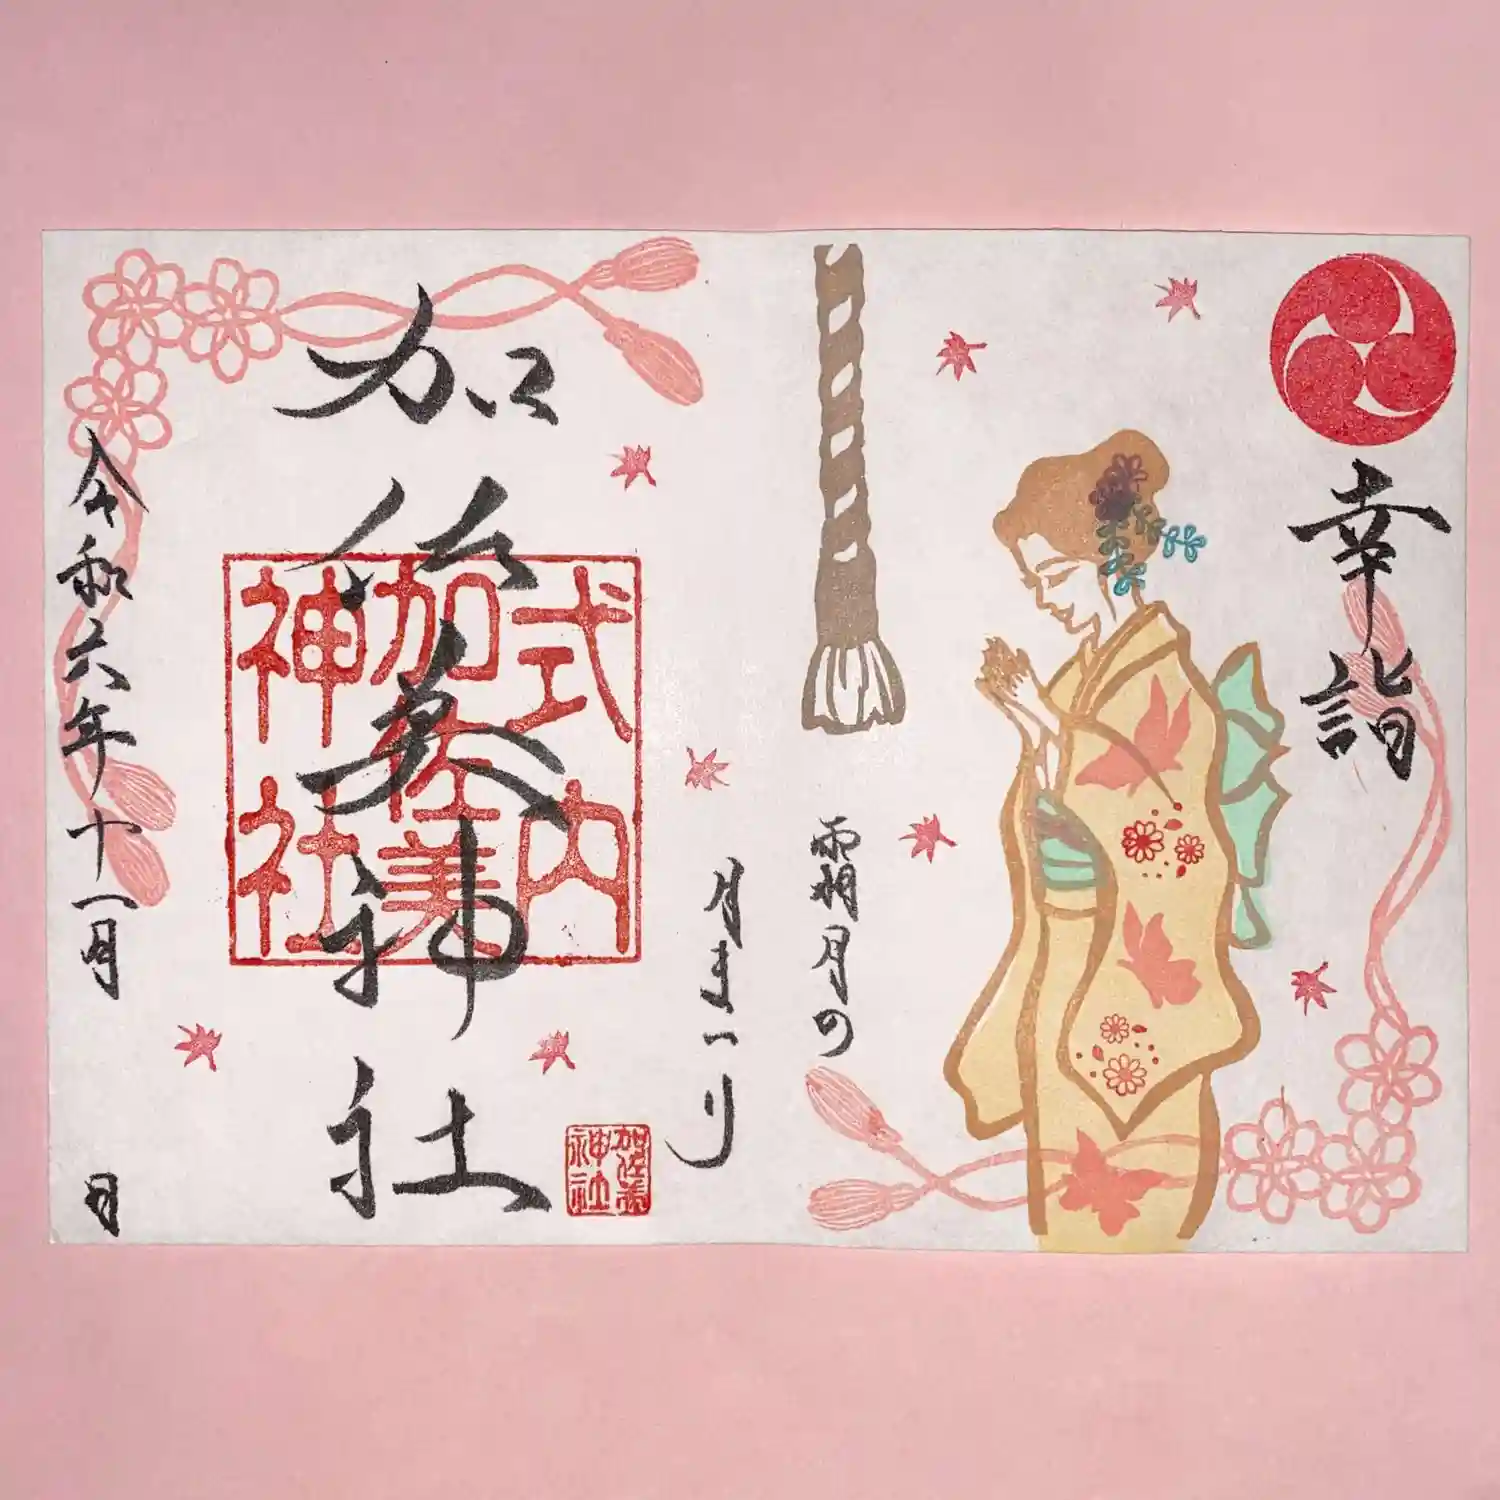 幸詣
霜月の
月まつり
加佐美神社
式内
加佐美
神社
加佐美
神社
令和六年十一月
日